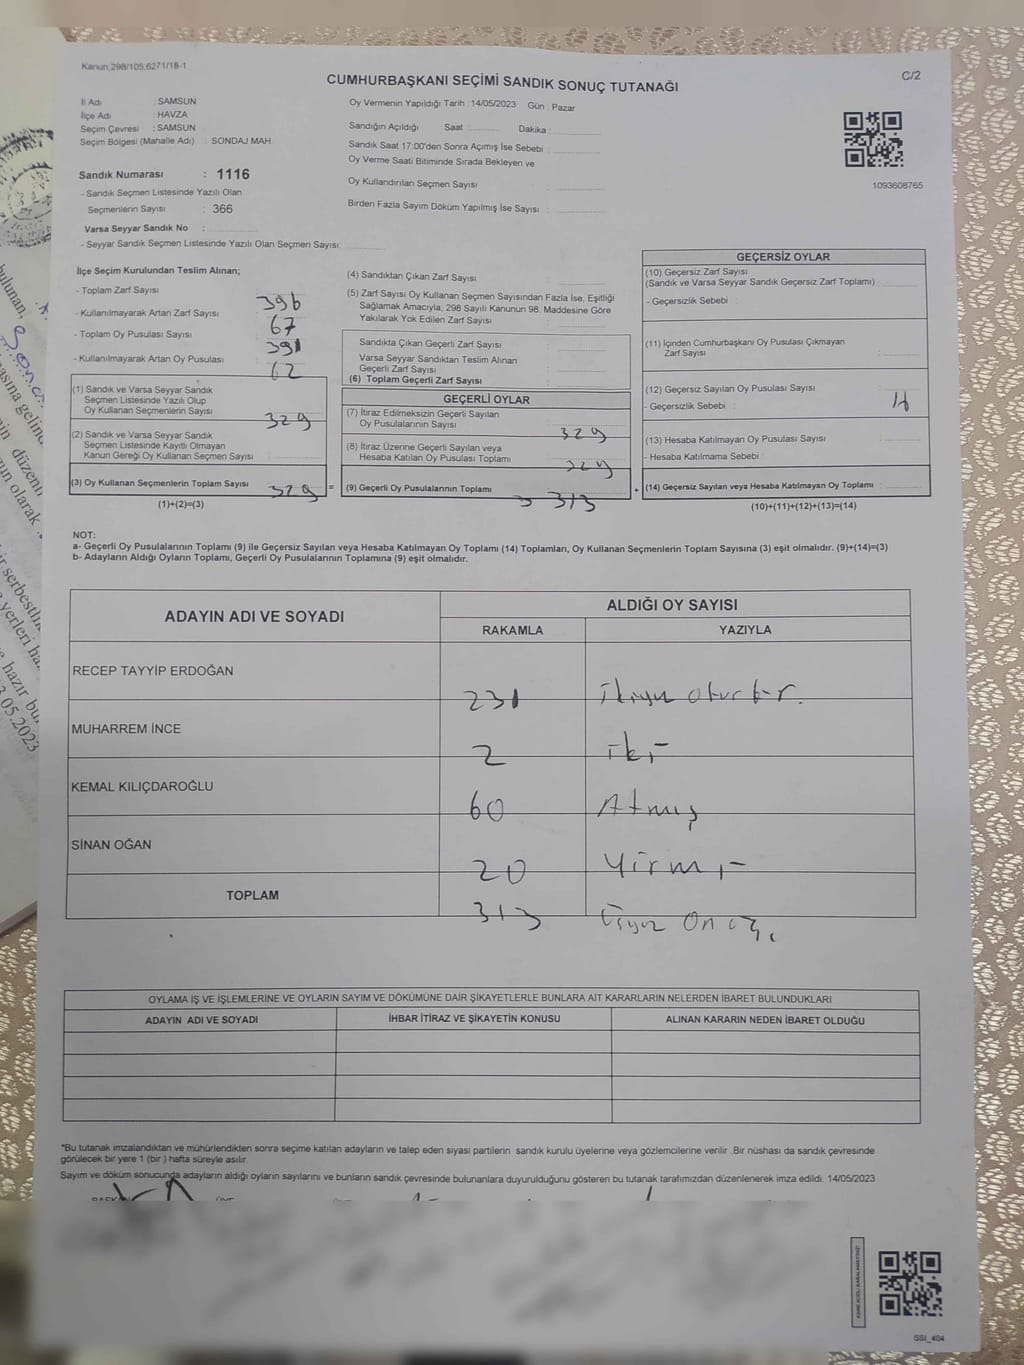 Kanun:298/105,6271/18-1
CUMHURBAŞKANI SEÇİMİ SANDIK SONUÇ TUTANAĞI
C/2
İl Adı : SAMSUN
İlçe Adı : HAVZA
Seçim Çevresi : SAMSUN
Seçim Bölgesi (Mahalle Adı) : SONDAJ MAH.
Sandık Numarası : 1116
- Sandık Seçmen Listesinde Yazılı Olan
Seçmenlerin Sayısı : 366
Varsa Seyyar Sandık No :
- Seyyar Sandık Seçmen Listesinde Yazılı Olan Seçmen Sayısı:
Oy Vermenin Yapıldığı Tarih :14/05/2023 Gün : Pazar
Sandığın Açıldığı Saat Dakika :
Sandık Saat 17:00'den Sonra Açımış İse Sebebi :
Oy Verme Saati Bitiminde Sırada Bekleyen ve
Oy Kullandırılan Seçmen Sayısı :
Birden Fazla Sayım Döküm Yapılmış İse Sayısı :
1093608765
İlçe Seçim Kurulundan Teslim Alınan;
- Toplam Zarf Sayısı : 396
- Kullanılmayarak Artan Zarf Sayısı : 67
- Toplam Oy Pusulası Sayısı : 391
- Kullanılmayarak Artan Oy Pusulası : 62
(1) Sandık ve Varsa Seyyar Sandık
Seçmen Listesinde Yazılı Olup
Oy Kullanan Seçmenlerin Sayısı : 329
(2) Sandık ve Varsa Seyyar Sandık
Seçmen Listesinde Kayıtlı Olmayan
Kanun Gereği Oy Kullanan Seçmen Sayısı :
(3) Oy Kullanan Seçmenlerin Toplam Sayısı : 329
(1)+(2)=(3)
=
(4) Sandıktan Çıkan Zarf Sayısı :
(5) Zarf Sayısı Oy Kullanan Seçmen Sayısından Fazla İse, Eşitliği
Sağlamak Amacıyla; 298 Sayılı Kanunun 98. Maddesine Göre
Yakılarak Yok Edilen Zarf Sayısı :
Sandıkta Çıkan Geçerli Zarf Sayısı :
Varsa Seyyar Sandıktan Teslim Alınan
Geçerli Zarf Sayısı :
(6) Toplam Geçerli Zarf Sayısı :
GEÇERLİ OYLAR
(7) İtiraz Edilmeksizin Geçerli Sayılan
Oy Pusulalarının Sayısı : 329
(8) İtiraz Üzerine Geçerli Sayılan veya
Hesaba Katılan Oy Pusulası Toplamı : 329
(9) Geçerli Oy Pusulalarının Toplamı : 313
+
GEÇERSİZ OYLAR
(10) Geçersiz Zarf Sayısı
(Sandık ve Varsa Seyyar Sandık Geçersiz Zarf Toplamı) :
- Geçersizlik Sebebi :
(11) İçinden Cumhurbaşkanı Oy Pusulası Çıkmayan
Zarf Sayısı :
(12) Geçersiz Sayılan Oy Pusulası Sayısı :
- Geçersizlik Sebebi :
(13) Hesaba Katılmayan Oy Pusulası Sayısı :
- Hesaba Katılmama Sebebi :
(14) Geçersiz Sayılan veya Hesaba Katılmayan Oy Toplamı :
(10)+(11)+(12)+(13)=(14)
NOT:
a- Geçerli Oy Pusulalarının Toplamı (9) ile Geçersiz Sayılan veya Hesaba Katılmayan Oy Toplamı (14) Toplamları, Oy Kullanan Seçmenlerin Toplam Sayısına (3) eşit olmalıdır. (9)+(14)=(3)
b- Adayların Aldığı Oyların Toplamı, Geçerli Oy Pusulalarının Toplamına (9) eşit olmalıdır.
ADAYIN ADI VE SOYADI
ALDIĞI OY SAYISI
RAKAMLA YAZIYLA
RECEP TAYYİP ERDOĞAN 231 ikiyüz otuz bir.
MUHARREM İNCE 2 iki
KEMAL KILIÇDAROĞLU 60 Atmış
SİNAN OĞAN 20 Yirmi
TOPLAM 313 üçyüz on üç.
OYLAMA İŞ VE İŞLEMLERİNE VE OYLARIN SAYIM VE DÖKÜMÜNE DAİR ŞİKAYETLERLE BUNLARA AİT KARARLARIN NELERDEN İBARET BULUNDUKLARI
ADAYIN ADI VE SOYADI İHBAR İTİRAZ VE ŞİKAYETİN KONUSU ALINAN KARARIN NEDEN İBARET OLDUĞU
*Bu tutanak imzalandıktan ve mühürlendikten sonra seçime katılan adayların ve talep eden siyasi partilerin sandık kurulu üyelerine veya gözlemcilerine verilir .Bir nüshası da sandık çevresinde
görülecek bir yere 1 (bir ) hafta süreyle asılır.
Sayım ve döküm sonucunda adayların aldığı oyların sayılarını ve bunların sandık çevresinde bulunanlara duyurulduğunu gösteren bu tutanak tarafımızdan düzenlenerek imza edildi. 14/05/2023
SSI_404